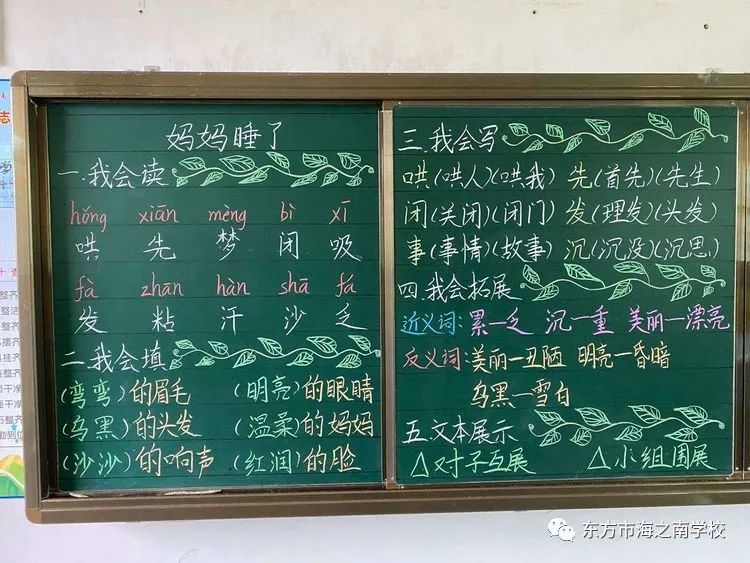 妈妈睡了
一.我会读
hǒng xiān mèng bì xī
哄 先 梦 闭 吸
fà zhān hàn shā fá
发 粘 汗 沙 乏
二.我会填
(弯弯)的眉毛 (明亮)的眼睛
(乌黑)的头发 (温柔)的妈妈
(沙沙)的响声 (红润)的脸
三.我会写
哄(哄人)(哄我) 先(首先)(先生)
闭(关闭)(闭门) 发(理发)(头发)
事(事情)(故事) 沉(沉没)(沉思)
四.我会拓展
近义词:累—乏 沉—重 美丽—漂亮
反义词:美丽—丑陋 明亮—昏暗
乌黑—雪白
五.文本展示
△对子互展 △小组围展
东方市海之南学校